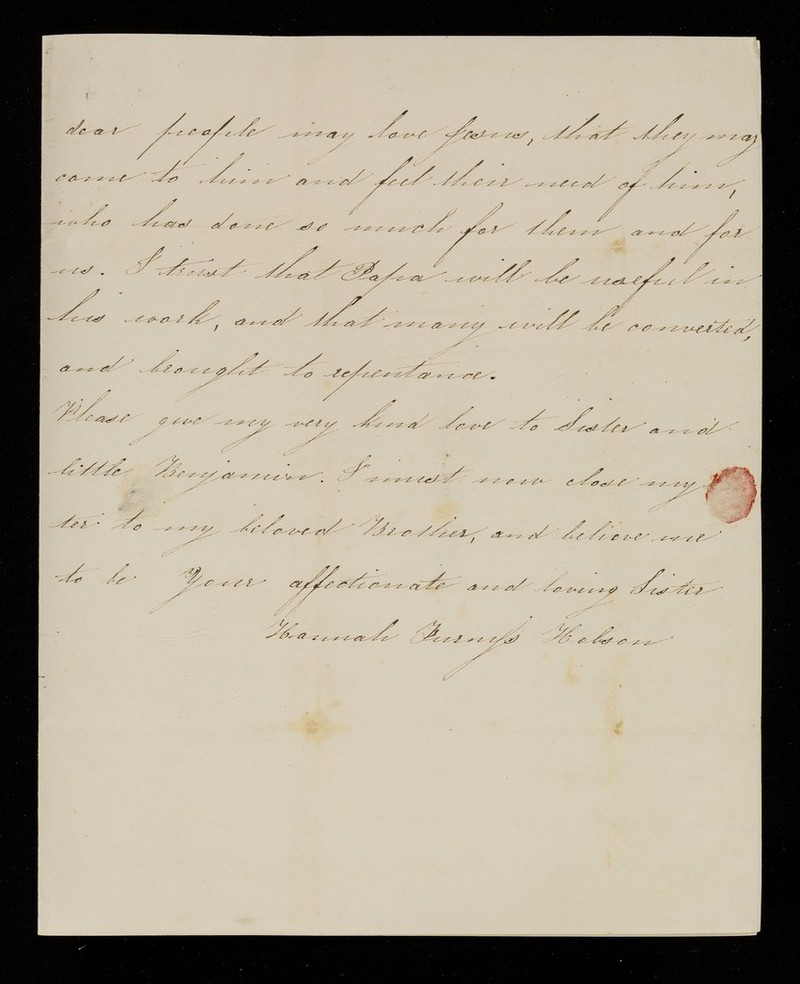 dear people may love Jesus, that they may
come to him and feel their need of him,
who has done so much for them and for
us. I trust that Papa will be useful in
his work, and that many will be converted,
and brought to repentance.
Please give my very kind love to Sister and
little Benjamin. I must now close my
ter to my beloved Brother, and believe me
to be Your affectionate and loving Sister
Hannah Furnifs Hobson